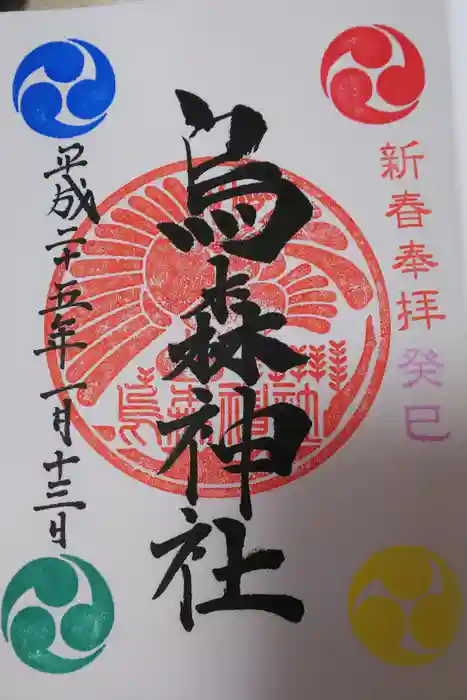 新春奉拝癸巳
烏森神社
平成二十五年一月十三日
烏森神社